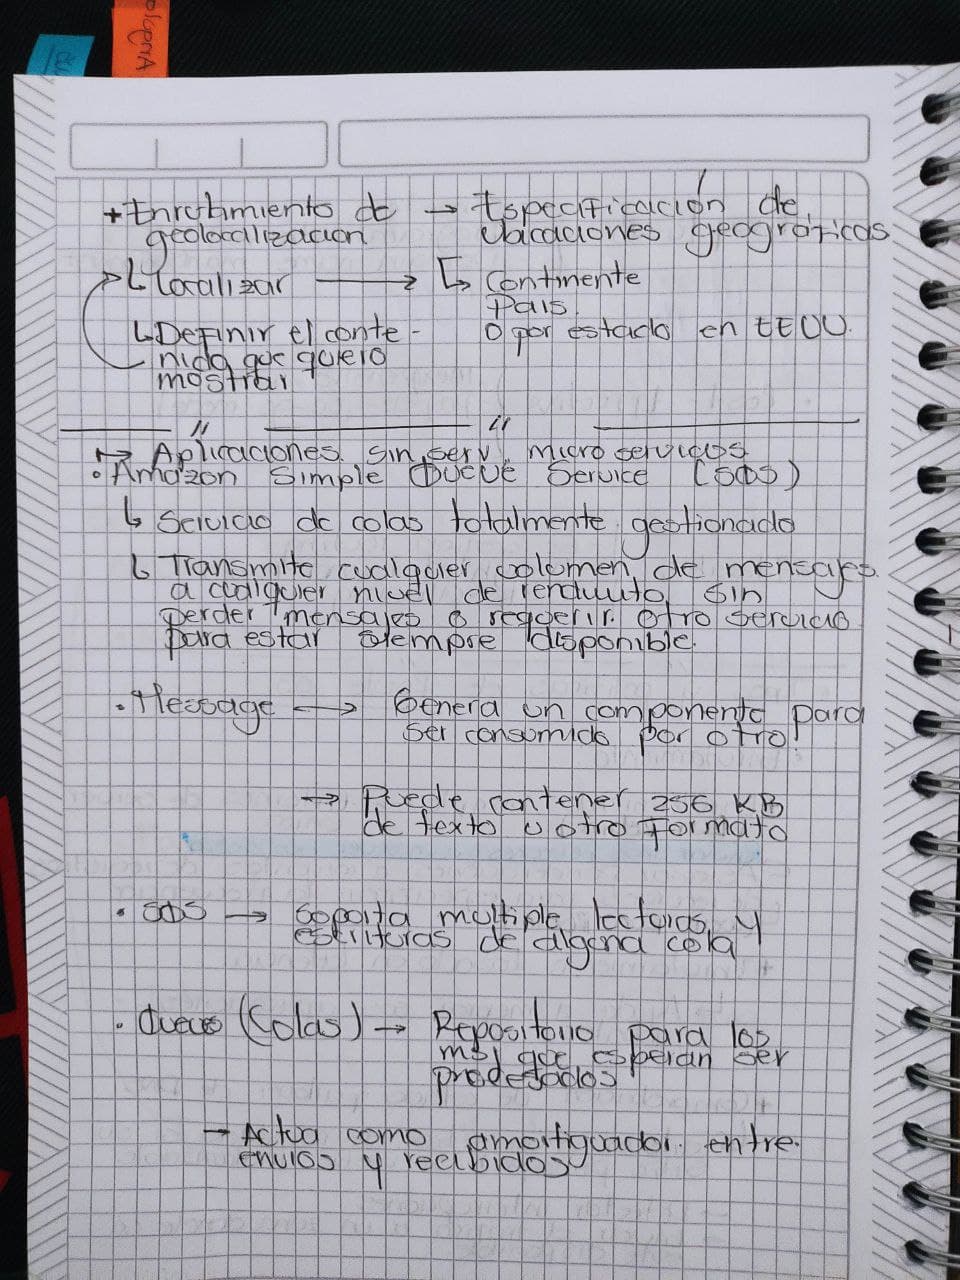 + Enrutimiento de → Especificación de
geolocalización ubicaciones geográficas
↳ Localizar → ↳ Continente
País
↳ Definir el conte- O por estado en EEUU.
nido que quiero
mostrar
↦ Aplicaciones sin serv. micro servicios
• Amazon Simple Queue Service (SQS)
↳ Servicio de colas totalmente gestionado
↳ Transmite cualquier volumen de mensajes
a cualquier nivel de sin
perder mensajes o requerir otro servicio
para estar siempre disponible.
• Message → Genera un componente para
ser consumido por otro
→ Puede contener 256 KB
de texto u otro formato
• SQS → Soporta multiple lectoras y
escrituras de alguna cola
• Queues (Colas) → Repositorio para los
msj que esperan ser
procesados
→ Actua como amortiguador entre
envios y recibidos